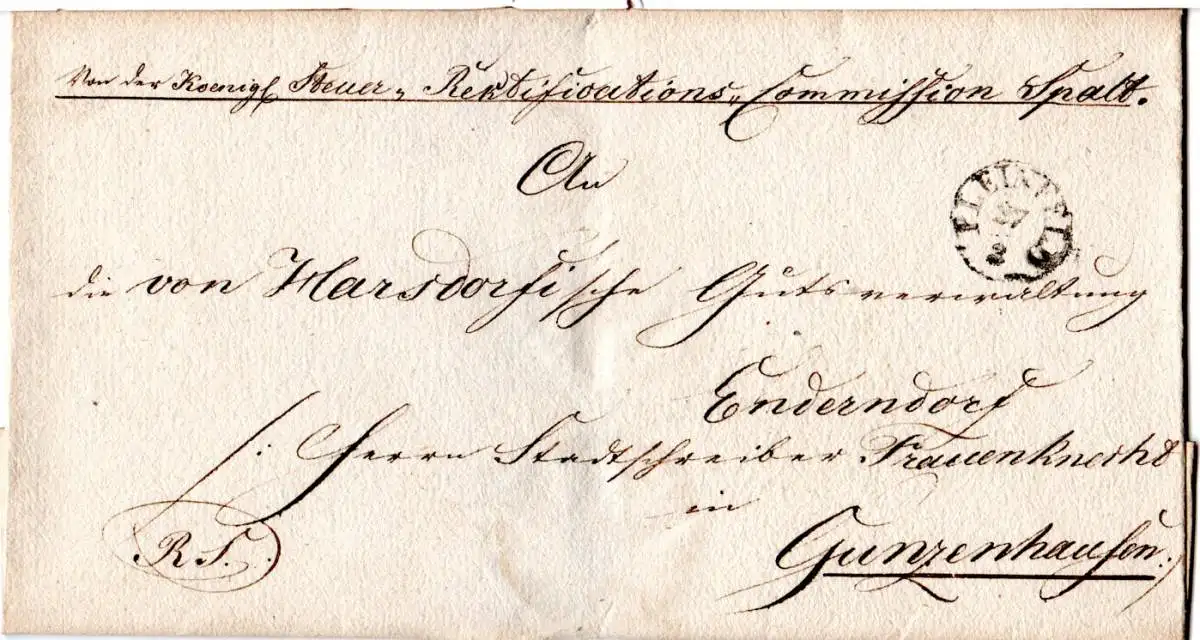 Von der Koenigl Steuer„ Rektifications„ Commission Spalt.
An
PLEINFELD
27
2
die von Harsdorfische Gutsverwaltung
Enderndorf
/: Herrn Stadtschreiber Frauenknecht
in
R. S.
Gunzenhausen :/